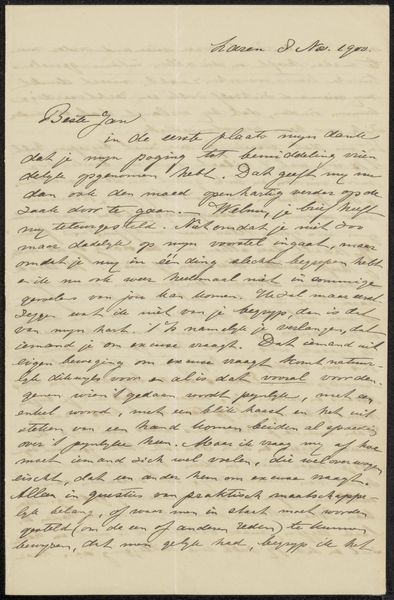 Laren 8 Nov. 1900.
Beste Jan
in de eerste plaats mijn dank
dat je mijn poging tot bemiddeling vrien
delijk opgenomen hebt. Dat geeft mij nu
dan ook den moed openhartig verder op de
zaak door te gaan. Welnu, je brief heeft
mij teleurgesteld. Niet omdat je niet zoo
maar dadelijk op mijn voorstel ingaat, maar
omdat je mij in één ding slecht begrepen hebt
en ik nu ook weer heelemaal niet in sommige
gevoelens van jou kan komen. Ik zal maar eerst
zeggen wat ik niet van je begrijp, dan is dat
van mijn hart. 't Is namelijk je verlangen, dat
iemand je om excuse vraagt. Dat iemand uit
eigen beweging om excuse vraagt komt natuur-
lijk dikwijls voor en al is dat vooral voor den-
genen wien 't gedaan wordt pijnlijk, met een
enkel woord, met een blik haast en het uit
steken van een hand komen beiden al spoedig
over 't pijnlijke heen. Maar ik vraag mij af hoe
moet iemand zich wel voelen, die weloverwogen
eischt, dat een ander hem om excuse vraagt.
Alleen in questies van praktisch maatschappe-
lijk belang, of waar men in staat moet worden
gesteld (om de een of anderen reden) te kunnen
bewijzen, dat men gelijk had, begrijp ik het